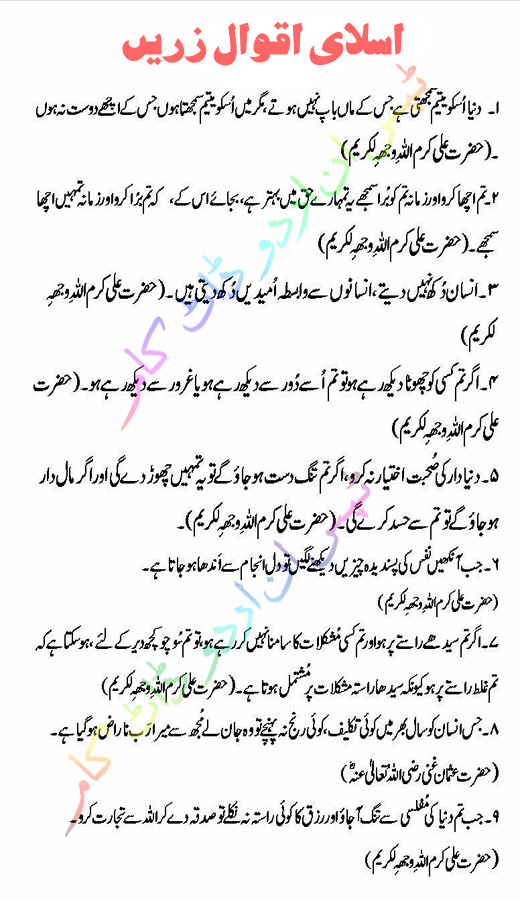 اسلامی اقوال زریں
۱۔ دنیا اُسکو یتیم سمجھتی ہے جس کے ماں باپ نہیں ہوتے، مگر میں اُسکو یتیم سمجھتا ہوں جس کے اچھے دوست نہ ہوں
۔(حضرت علی کرم اللہ وجھہِ لکریم)
۲۔ تم اچھا کرو اور زمانہ تم کو بُرا سمجھے یہ تمہارے حق میں بہتر ہے، بجائے اس کے، کہ تم بڑا کرو اور زمانہ تمہیں اچھا
سمجھے۔(حضرت علی کرم اللہ وجھہِ لکریم)
۳۔ انسان دُکھ نہیں دیتے، انسانوں سے واسطہ اُمیدیں دُکھ دیتی ہیں۔(حضرت علی کرم اللہ وجھہِ
لکریم)
۴۔ اگر تم کسی کو چھوٹا دیکھ رہے ہو تو تم اُسے دُور سے دیکھ رہے ہو یا غرور سے دیکھ رہے ہو۔(حضرت
علی کرم اللہ وجھہِ لکریم)
۵۔ دنیا دار کی صُحبت اختیار نہ کرو، اگر تم تنگ دست ہو جاؤ گے تو یہ تمہیں چھوڑ دے گی اور اگر مال دار
ہو جاؤ گے تو تم سے حسد کرے گی۔(حضرت علی کرم اللہ وجھہِ لکریم)۔
۶۔ جب آنکھیں نفس کی پسندیدہ چیزیں دیکھنے لگیں تو دل انجام سے اَندھا ہو جاتا ہے۔
(حضرت علی کرم اللہ وجھہِ لکریم)
۷۔ اگر تم سیدھے راستے پر ہو اور تم کسی مُشکلات کا سامنا نہیں کر رہے ہو، تو تم سُوچو کچھ دیر کے لئے، ہو سکتا ہے کہ
تم غلط راستے پر ہو کیونکہ سیدھا راستہ مشکلات پر مُشتمل ہوتا ہے۔(حضرت علی کرم اللہ وجھہِ لکریم)
۸۔ جس انسان کو سال بھر میں کوئی تکلیف، کوئی رنج نہ پہنچے تو وہ جان لے مُجھ سے میرا رَب ناراض ہو گیا ہے۔
(حضرت عثمان غنی رضی اللہُ تعالیٰ عنہ)
۹۔ جب تم دنیا کی مُفلسی سے تنگ آجاؤ اور رزق کا کوئی راستہ نہ نکلے تو صدقہ دے کر اللہ سے تجارت کرو۔
(حضرت علی کرم اللہ وجھہِ لکریم)
ٹپس ان اردو ڈاٹ کام
ٹپس ان اردو ڈاٹ کام